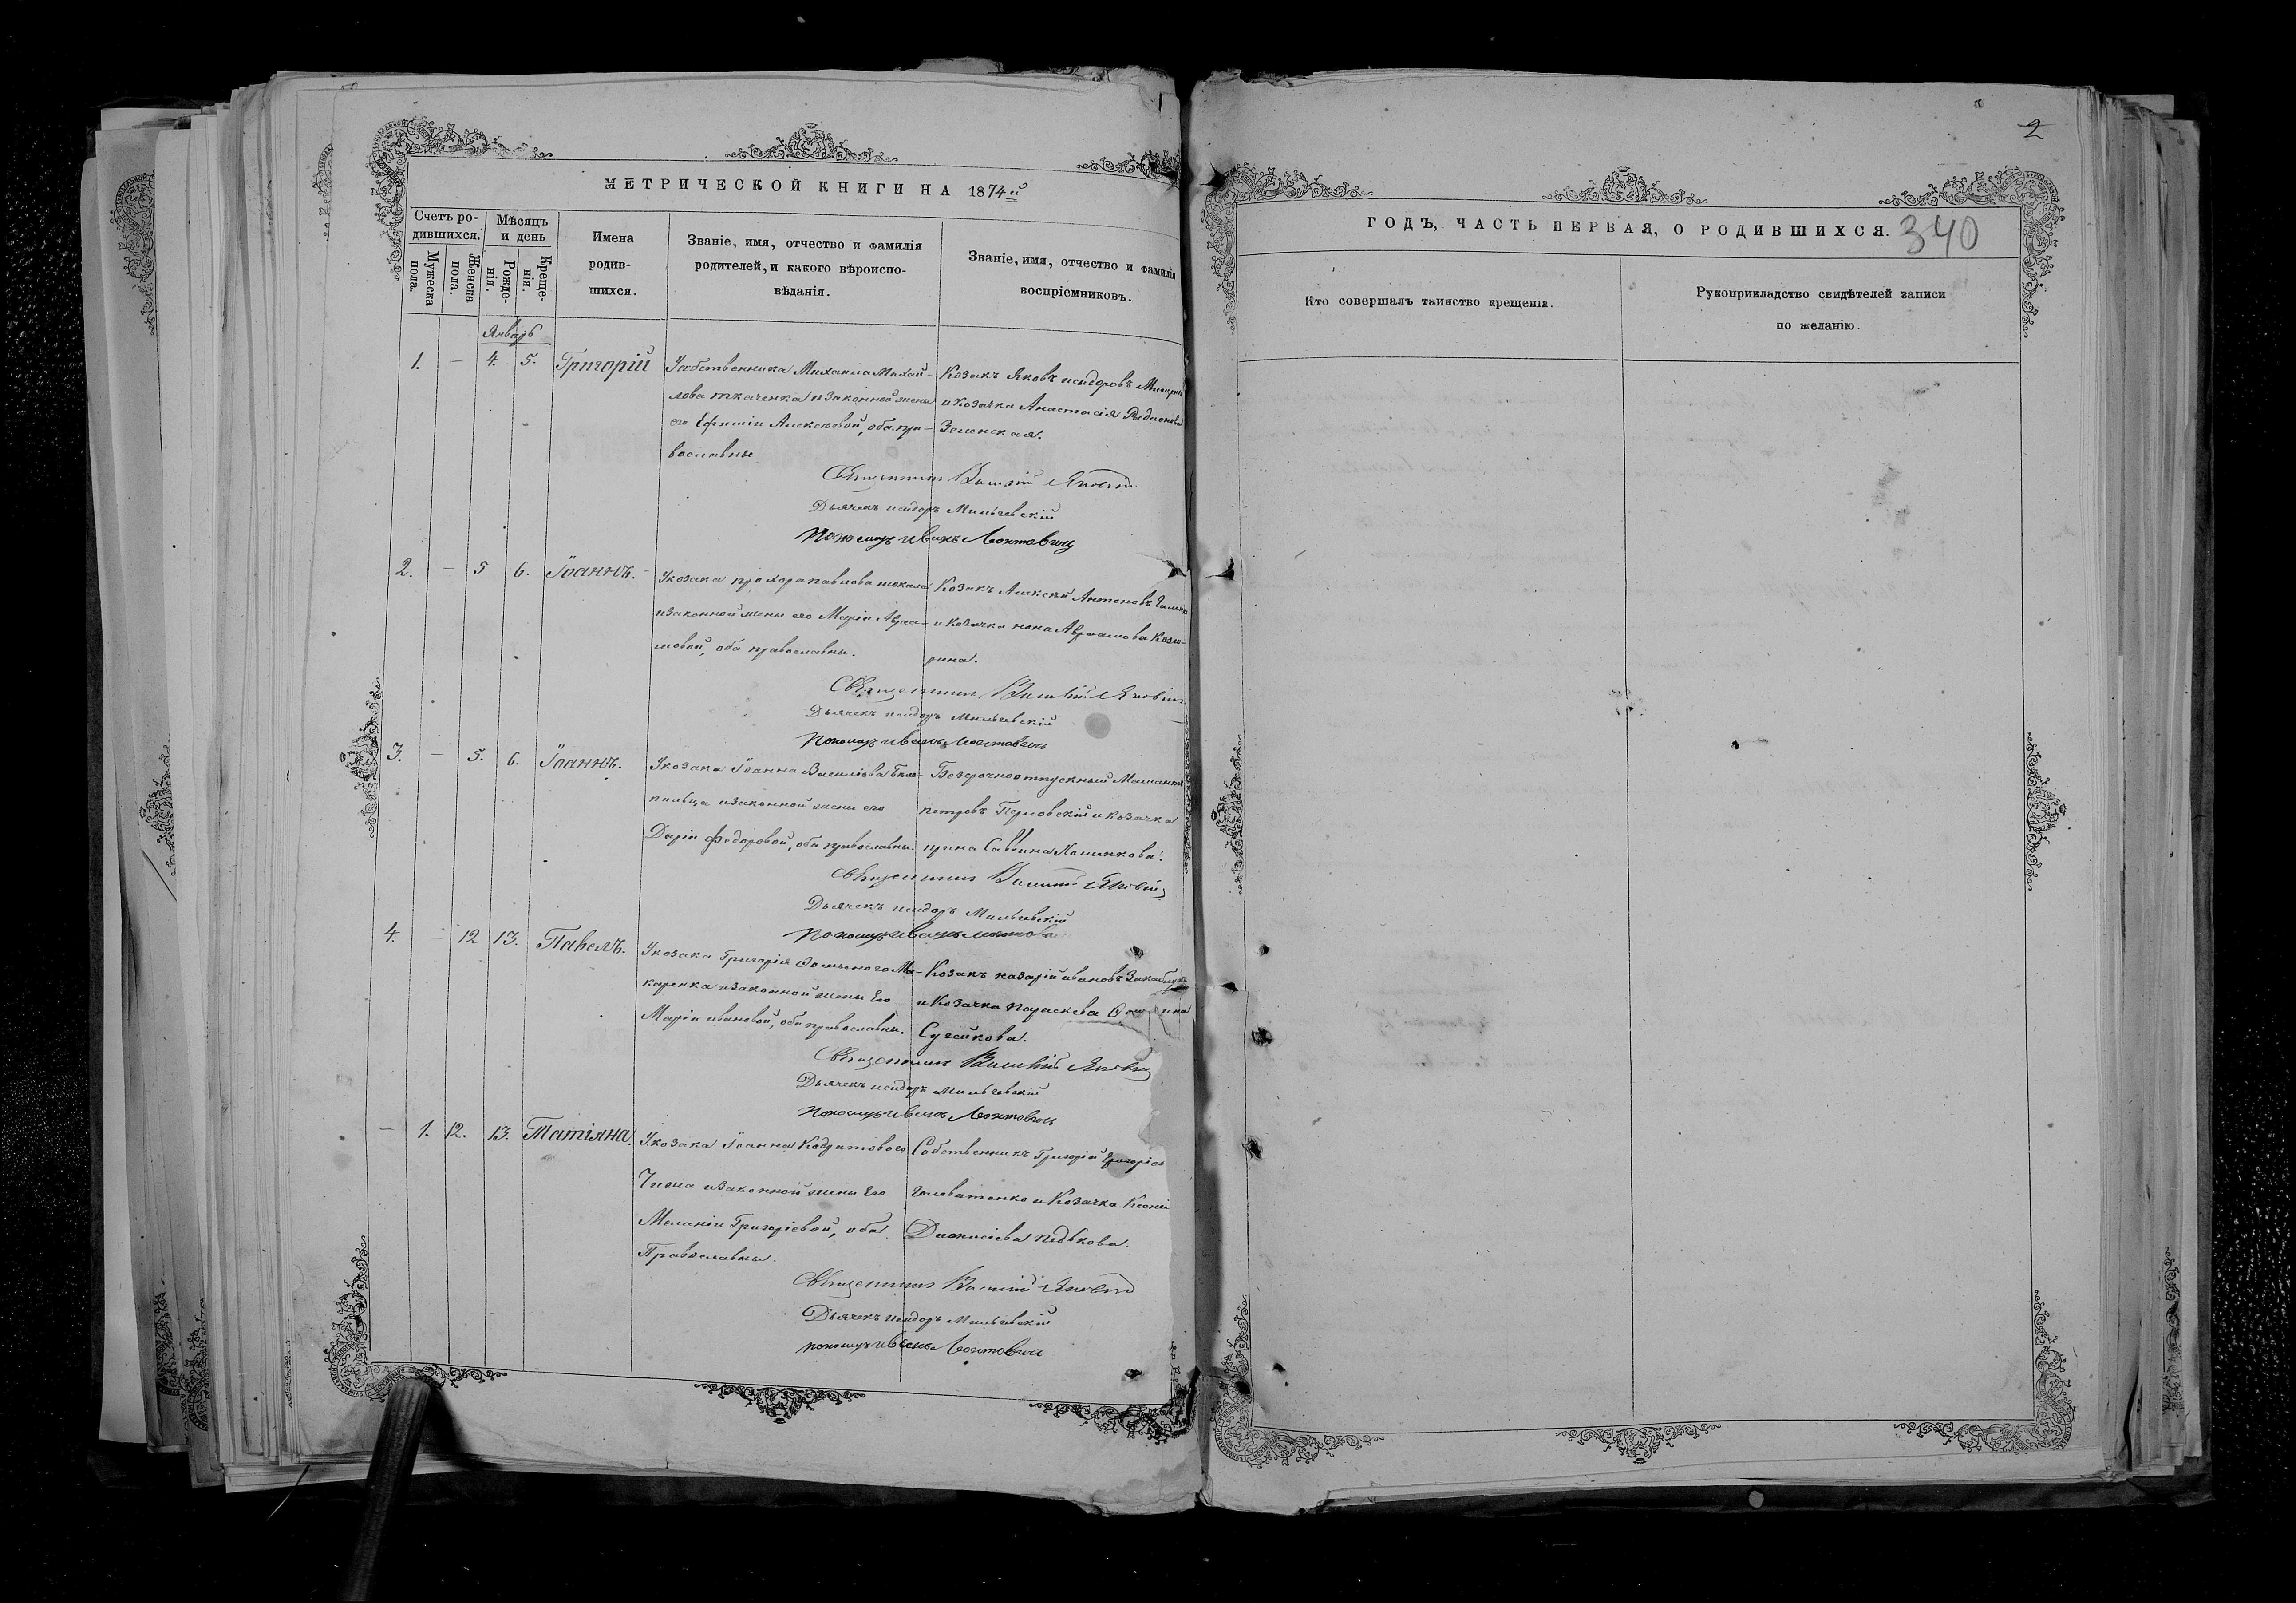 1
МЕТРИЧЕСКОЙ КНИГИ НА 1874й
Счетъ ро-
дившихся.
Мужеска пола.
Женска пола.
Мѣсяцъ
и день
Рожде-
нія.
Креще-
нія.
Имена
родив-
шихся.
Званіе, имя, отчество и фамилія
родителей, и какого вѣроиспо-
вѣданія.
Званіе, имя, отчество и фамилія
воспріемниковъ.
Январь
1. — 4. 5. Григорій
Усобственника Михаила Михай-
лова ткаченка изаконной жены
его Алексѣевой, оба пра-
вославные
Козакъ Яковъ исидоровъ
и козачка Анастасія Родионова
Зеленская.
Священникъ Василій
Дьячекъ исидоръ Мильчевскій
Пономарь иванъ Леонтовичъ
2. — 5 6. Іоаннъ.
Укозака прохора павлова
изаконной жены его Маріи Авраа-
мовой, оба православны.
Козакъ Алексѣй Антоновъ
и козачка Авраамова
рина.
Священникъ Василій
Дьячекъ исидоръ Мильчевскій
Пономарь иванъ Леонтовичъ
3. — 5. 6. Іоаннъ.
Укозака Іоанна Василіева
изаконной жены его
Даріи Федоровой, оба православны.
Безсрочноотпускный
петровъ и козачка
Саввина
Священникъ Василій
Дьячекъ исидоръ Мильчевскій
Пономарь иванъ
4. — 12 13. Павелъ.
Укозака Григорія Ма-
каренка изаконной жены Его
Маріи ивановой, оба православны.
Козакъ назарій ивановъ
и Козачка параскева
Сугейкова.
Священникъ Василій
Дьячекъ исидоръ Мильчевскій
Пономарь иванъ Леонтовичъ
— 1. 12. 13. Татіяна.
Укозака Іоанна Кодратового
изаконной жены Его
Меланіи Григоріевой, оба
Православны.
Собственникъ Григорій Григоріев
Головатенко и Козачка Ксенія
Дионисіева педькова.
Священникъ Василій
Дьячекъ исидоръ Мильчевскій
пономарь иванъ Леонтовичъ
2
ГОДЪ, ЧАСТЬ ПЕРВАЯ, О РОДИВШИХСЯ. 340
Кто совершалъ таинство крещенія.
Рукоприкладство свидѣтелей записи
по желанію.